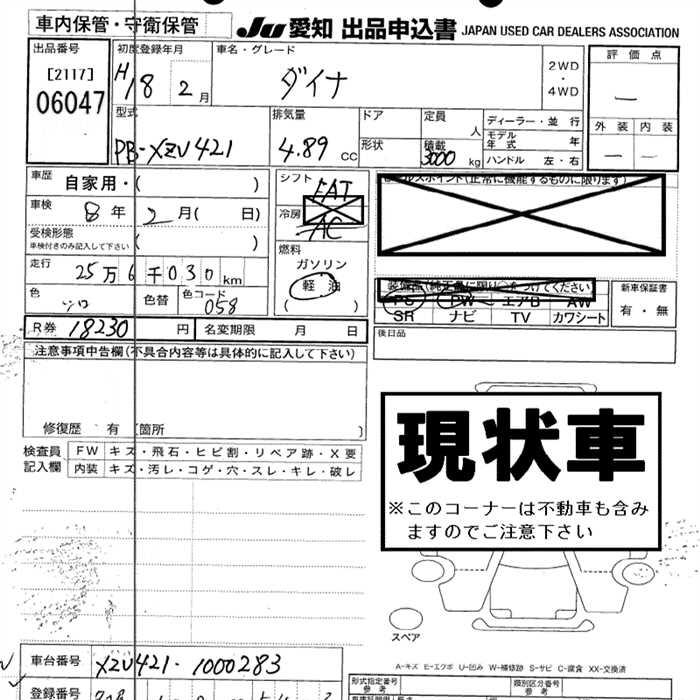 車内保管・守衛保管 JU 愛知 出品申込書 JAPAN USED CAR DEALERS ASSOCIATION
出品番号 初度登録年月 車名・グレード 評価点
[2117] H18 2月 ダイナ 2WD・4WD
06047
型式 排気量 ドア 定員 人 ディーラー・並行 外装 内装
PB-XZU421 4.89 CC 形状 積載 3000 kg モデル年式 年
ハンドル 左・右
車歴 自家用・( ) シフト FAT
セールスポイント(正常に機能するものに限ります)
車検 8年 2月( 日) 冷房 AC
受検形態 車検付きのみ記入して下さい ( ) 燃料
ガソリン
走行 25万6千030km 軽油
( )
装備品(純正品に限り○をつけてください) 新車保証書
色 シロ 色替 色コード 058 PS PW エアB AW 有・無
SR ナビ TV カワシート
R券 18230 円 名変期限 月 日 後日品
注意事項申告欄(不具合内容等は具体的に記入して下さい)
現状車
修復歴 有 [箇所 ]
検査員記入欄 FW キズ・飛石・ヒビ割・リペア跡・X要
内装 キズ・汚レ・コゲ・穴・スレ・キレ・破レ
※このコーナーは不動車も含み
ますのでご注意下さい
スペア
A-キズ E-エクボ U-凹み W-補修跡 S-サビ C-腐食 XX-交換済
車台番号 XZU421-1000283
形式指定番号 参考 類別区分番号 参考
登録番号